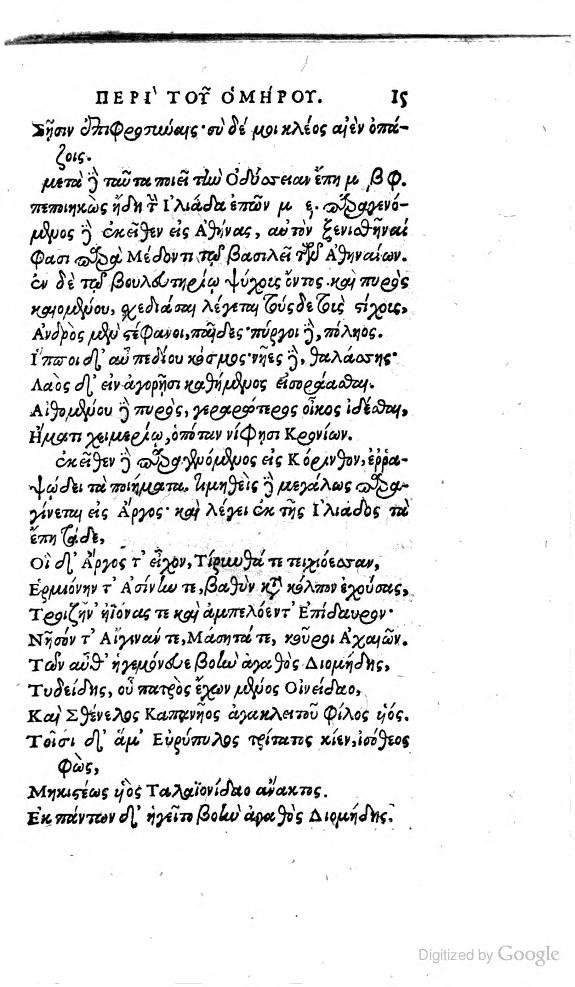 ΠΕΡΙ ΤΟΥ͂ ὉΜΉΡΟΥ. 15
Σῇσιν ἐπιφροσύναις· σὺ δέ μοι κλέος αἰὲν ὀπά-
ζοις.
μετὰ δὲ ταῦτα ποιεῖ τὴν Ὀδύσσειαν ἔπη μ β φ.
πεποιηκὼς ἤδη τ̀ Ἰλιάδα ἐπῶν μ ε. παραγενό-
μενος δὲ ἐκεῖθεν εἰς Ἀθήνας, αὐτὸν ξενισθῆναί
φασι παρὰ Μέδοντι τῷ βασιλεῖ τῶν Ἀθηναίων.
ἐν δὲ τῷ βουλευτηρίῳ ψύχους ὄντος καὶ πυρὸς
καιομένου, σχεδιάσαι λέγεται τούσδε τοὺς στίχους,
Ἀνδρὸς μὲν στέφανοι, παῖδες· πύργοι δὲ, πόληος.
Ἵπποι δ' αὖ πεδίου κόσμος· νῆες δὲ, θαλάσσης·
Λαὸς δ' εἰν ἀγορῇσι καθήμενος εἰσοράασθαι.
Αἰθομένου δὲ πυρὸς, γεραρώτερος οἶκος ἰδέσθαι,
Ἤματι χειμερίῳ, ὁπόταν νίφησι Κρονίων.
ἐκεῖθεν δὲ παραγενόμενος εἰς Κόρινθον, ἐῤῥα-
ψώδει τὰ ποιήματα. τιμηθεὶς δὲ μεγάλως παρα-
γίνεται εἰς Ἄργος· καὶ λέγει ἐκ τῆς Ἰλιάδος τὰ
ἔπη τάδε,
Οἳ δ' Ἄργος τ' εἶχον, Τίρυνθά τε τειχιόεσσαν,
Ἑρμιόνην τ' Ἀσίνην τε, βαθὺν κατὰ κόλπον ἐχούσας,
Τροιζῆν' ἠϊόνας τε καὶ ἀμπελόεντ' Ἐπίδαυρον·
Νῆσόν τ' Αἴγιναν τε, Μάσητά τε, κοῦροι Ἀχαιῶν.
Τῶν αὖθ' ἡγεμόνευε βοὴν ἀγαθὸς Διομήδης,
Τυδείδης, οὗ πατρὸς ἔχων μένος Οἰνείδαο,
Καὶ Σθένελος Καπανῆος ἀγακλειτοῦ φίλος υἱός.
Τοῖσι δ' ἅμ' Εὐρύπυλος τρίτατος κίεν, ἰσόθεος
φὼς,
Μηκιστέως υἱὸς Ταλαϊονίδαο ἄνακτος.
Ἐκ πάντων δ' ἡγεῖτο βοὴν ἀγαθὸς Διομήδης.
Digitized by Google